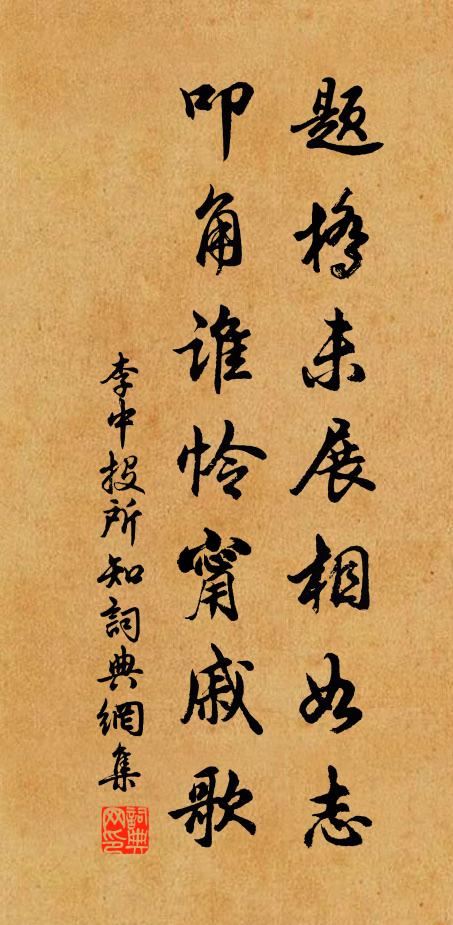 題橋未展相如志
叩角誰怜甯戚歌
李中投所知詞典網集
詞典網印